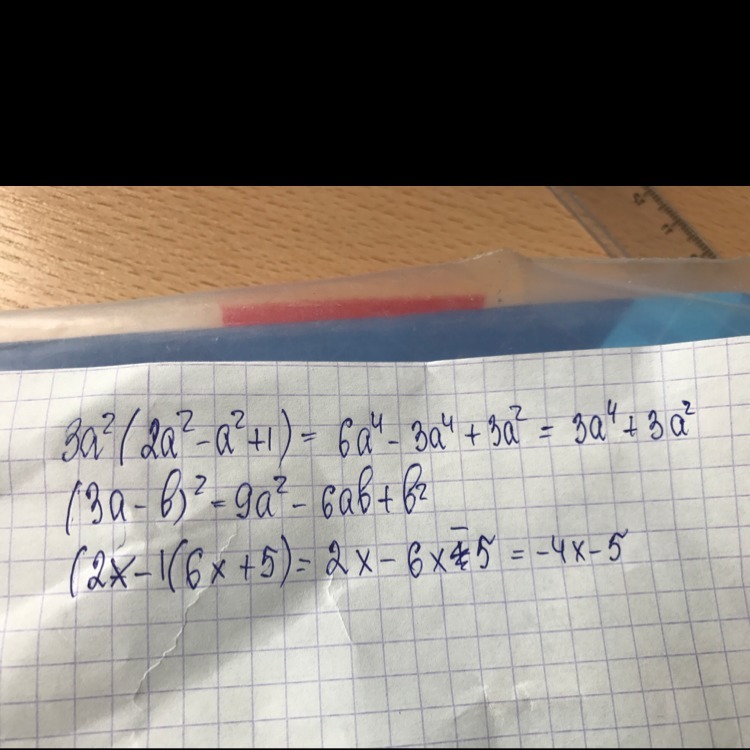 3a²(2a²-a²+1) = 6a⁴ - 3a⁴ + 3a² = 3a⁴ + 3a²
(3a - b)² = 9a² - 6ab + b²
(2x - 1(6x + 5) = 2x - 6x - 5 = -4x - 5